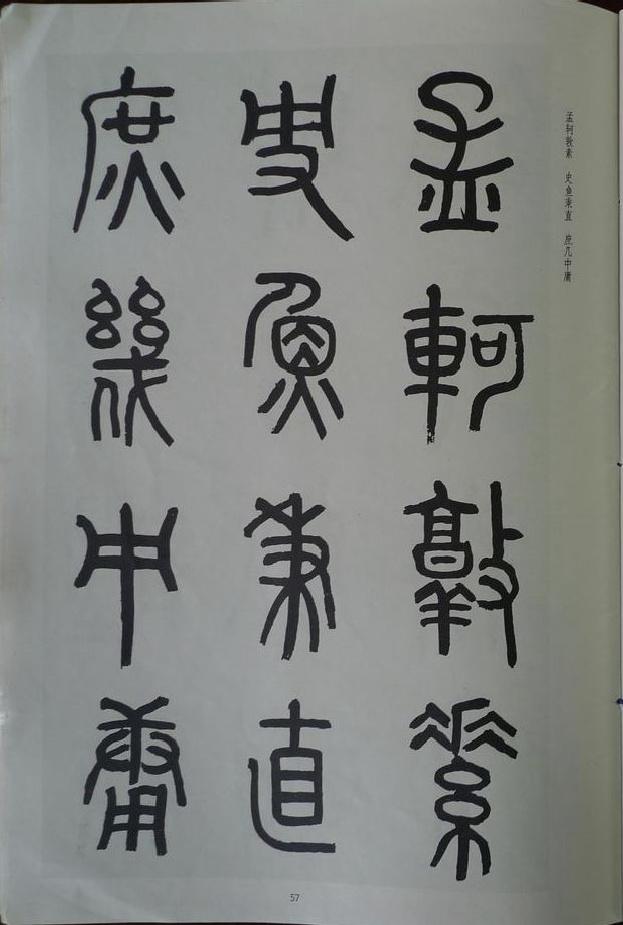 孟轲敦素 史鱼秉直 庶几中庸
孟軻敦素
史魚秉直
庶幾中庸
57